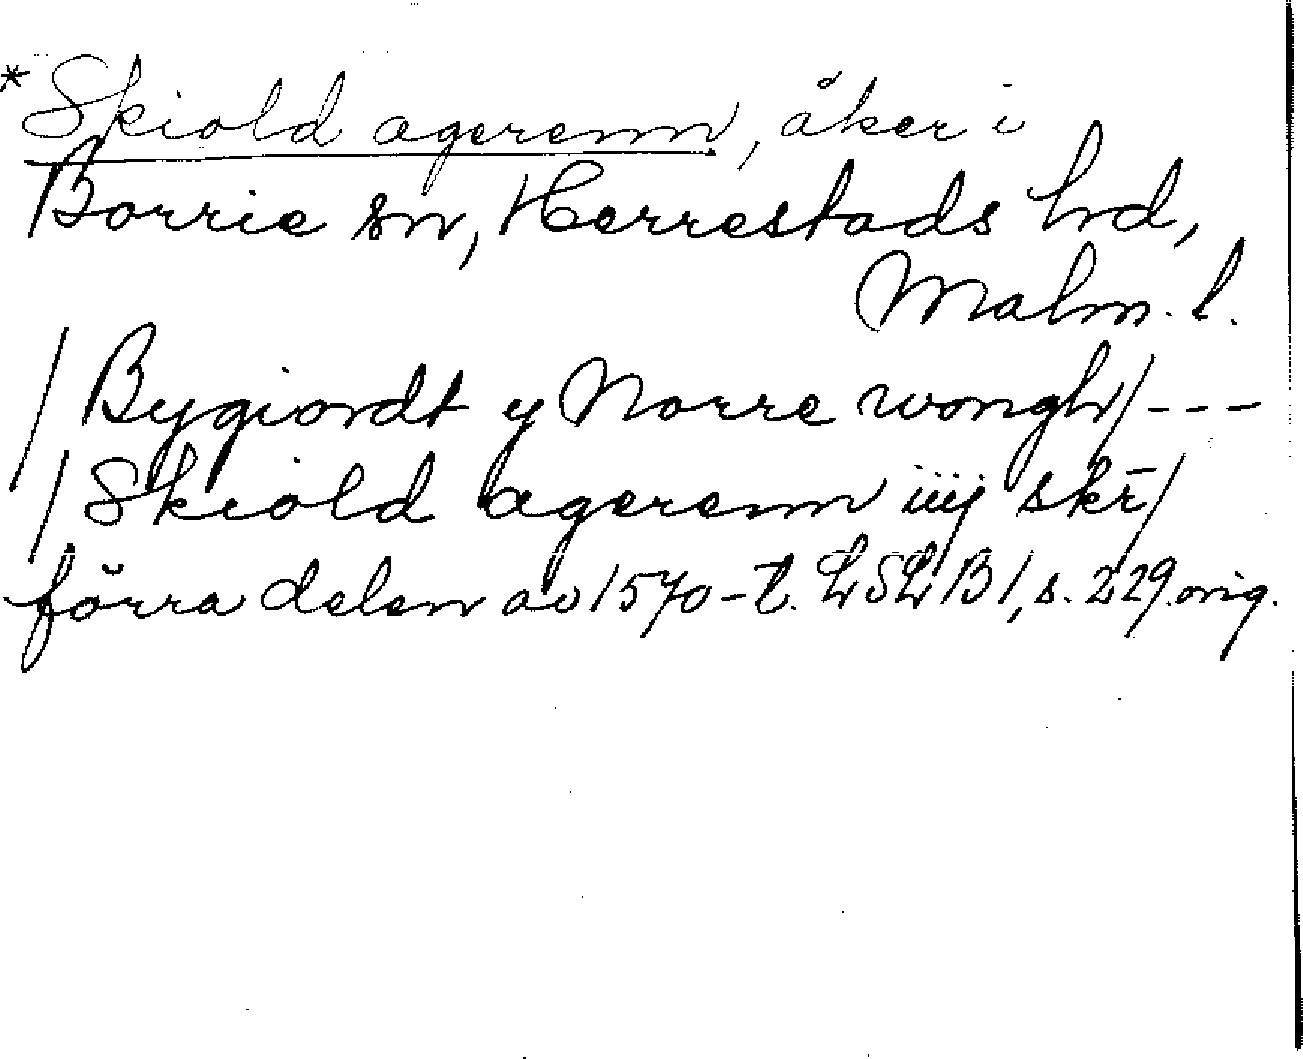 * Skiold agerenn, åker i
Borrie sn, Herrestads hd,
Malm. l.
/ Bygiordt y Norre wongh / - - -
/ Skiold agerenn iiij skr̄ /
förra delen av 1570-t. LSLB 1, s. 229. orig.